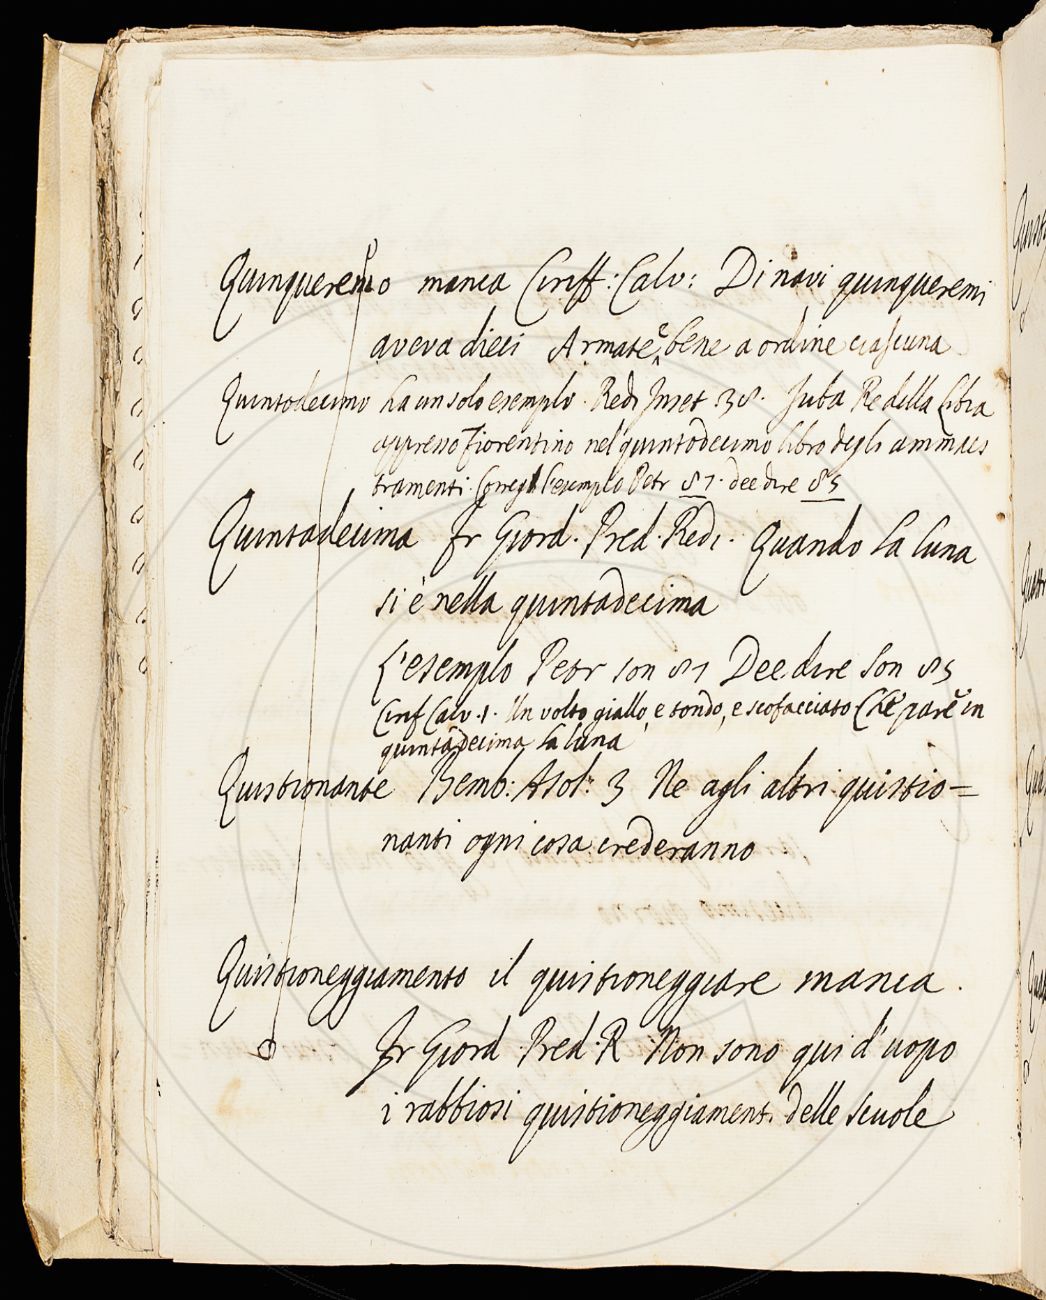 Quinqueremo manca Ciriff: Calv: Di navi quinqueremi
aveva dieci Armate, e bene a ordine ciascuna
Quintodecimo ha un solo esempio. Redi Inset. 38. Juba Re della Libia
appresso Fiorentino nel quintodecimo libro degli ammaes
tramenti. l'esempio Petr 87. dee dire 85
Quintadecima Fr Giord. Pred. Redi. Quando la luna
si è nella quintadecima
L'esempio Petr son 87 Dee dire Son 85
Cirif Calv. 1. Un volto giallo, e tondo, e scofacciato Che pare in
quintadecima la luna
Quistionante Bemb: Asol: 3 Ne agli altri quistio=
nanti ogni cosa crederanno
Quistioneggiamento il quistioneggiare manca.
Fr Giord. Pred. R. Non sono qui d'uopo
i rabbiosi quistioneggiamenti delle scuole